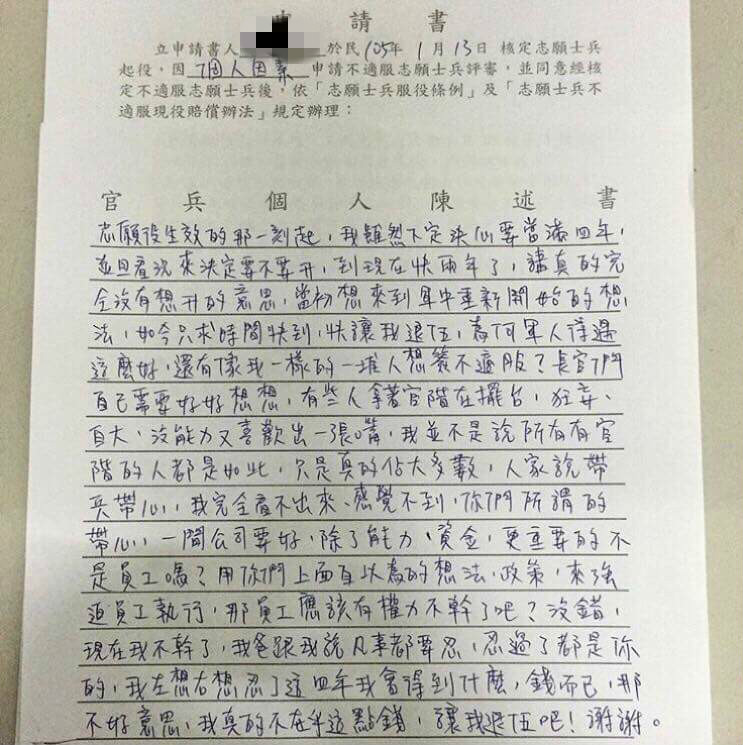 申請書
立申請書人 於民105年1月13日核定志願士兵
起役，因個人因素申請不適服志願士兵評審，並同意經核
定不適服志願士兵後，依「志願士兵服役條例」及「志願士兵不
適服現役賠償辦法」規定辦理：
官兵個人陳述書
志願役生效的那一刻起，我雖然下定決心要當滿四年，
並且看況來決定要不要升，到現在快兩年了，講真的完
全沒有想升的意思，當初想來到軍中重新開始的想
法，如今只求時間快到，快讓我退伍，為何軍人待遇
這麼好，還有像我一樣的一堆人想簽不適服？長官們
自己需要好好想想，有些人拿著官階在擺台，狂妄、
自大、沒能力又喜歡出一張嘴，我並不是說所有有官
階的人都是如此，只是真的佔大多數，人家說帶
兵帶心，我完全看不出來、感覺不到，你們所謂的
帶心，一間公司要好，除了能力、資金，更重要的不
是員工嗎？用你們上面自以為的想法，政策，來強
迫員工執行，那員工應該有權力不幹了吧？沒錯，
現在我不幹了，我爸跟我說凡事都要忍，忍過了都是你
的，我左想右想忍了這四年我會得到什麼，錢而已，那
不好意思，我真的不在乎這點錢，讓我退伍吧！謝謝。